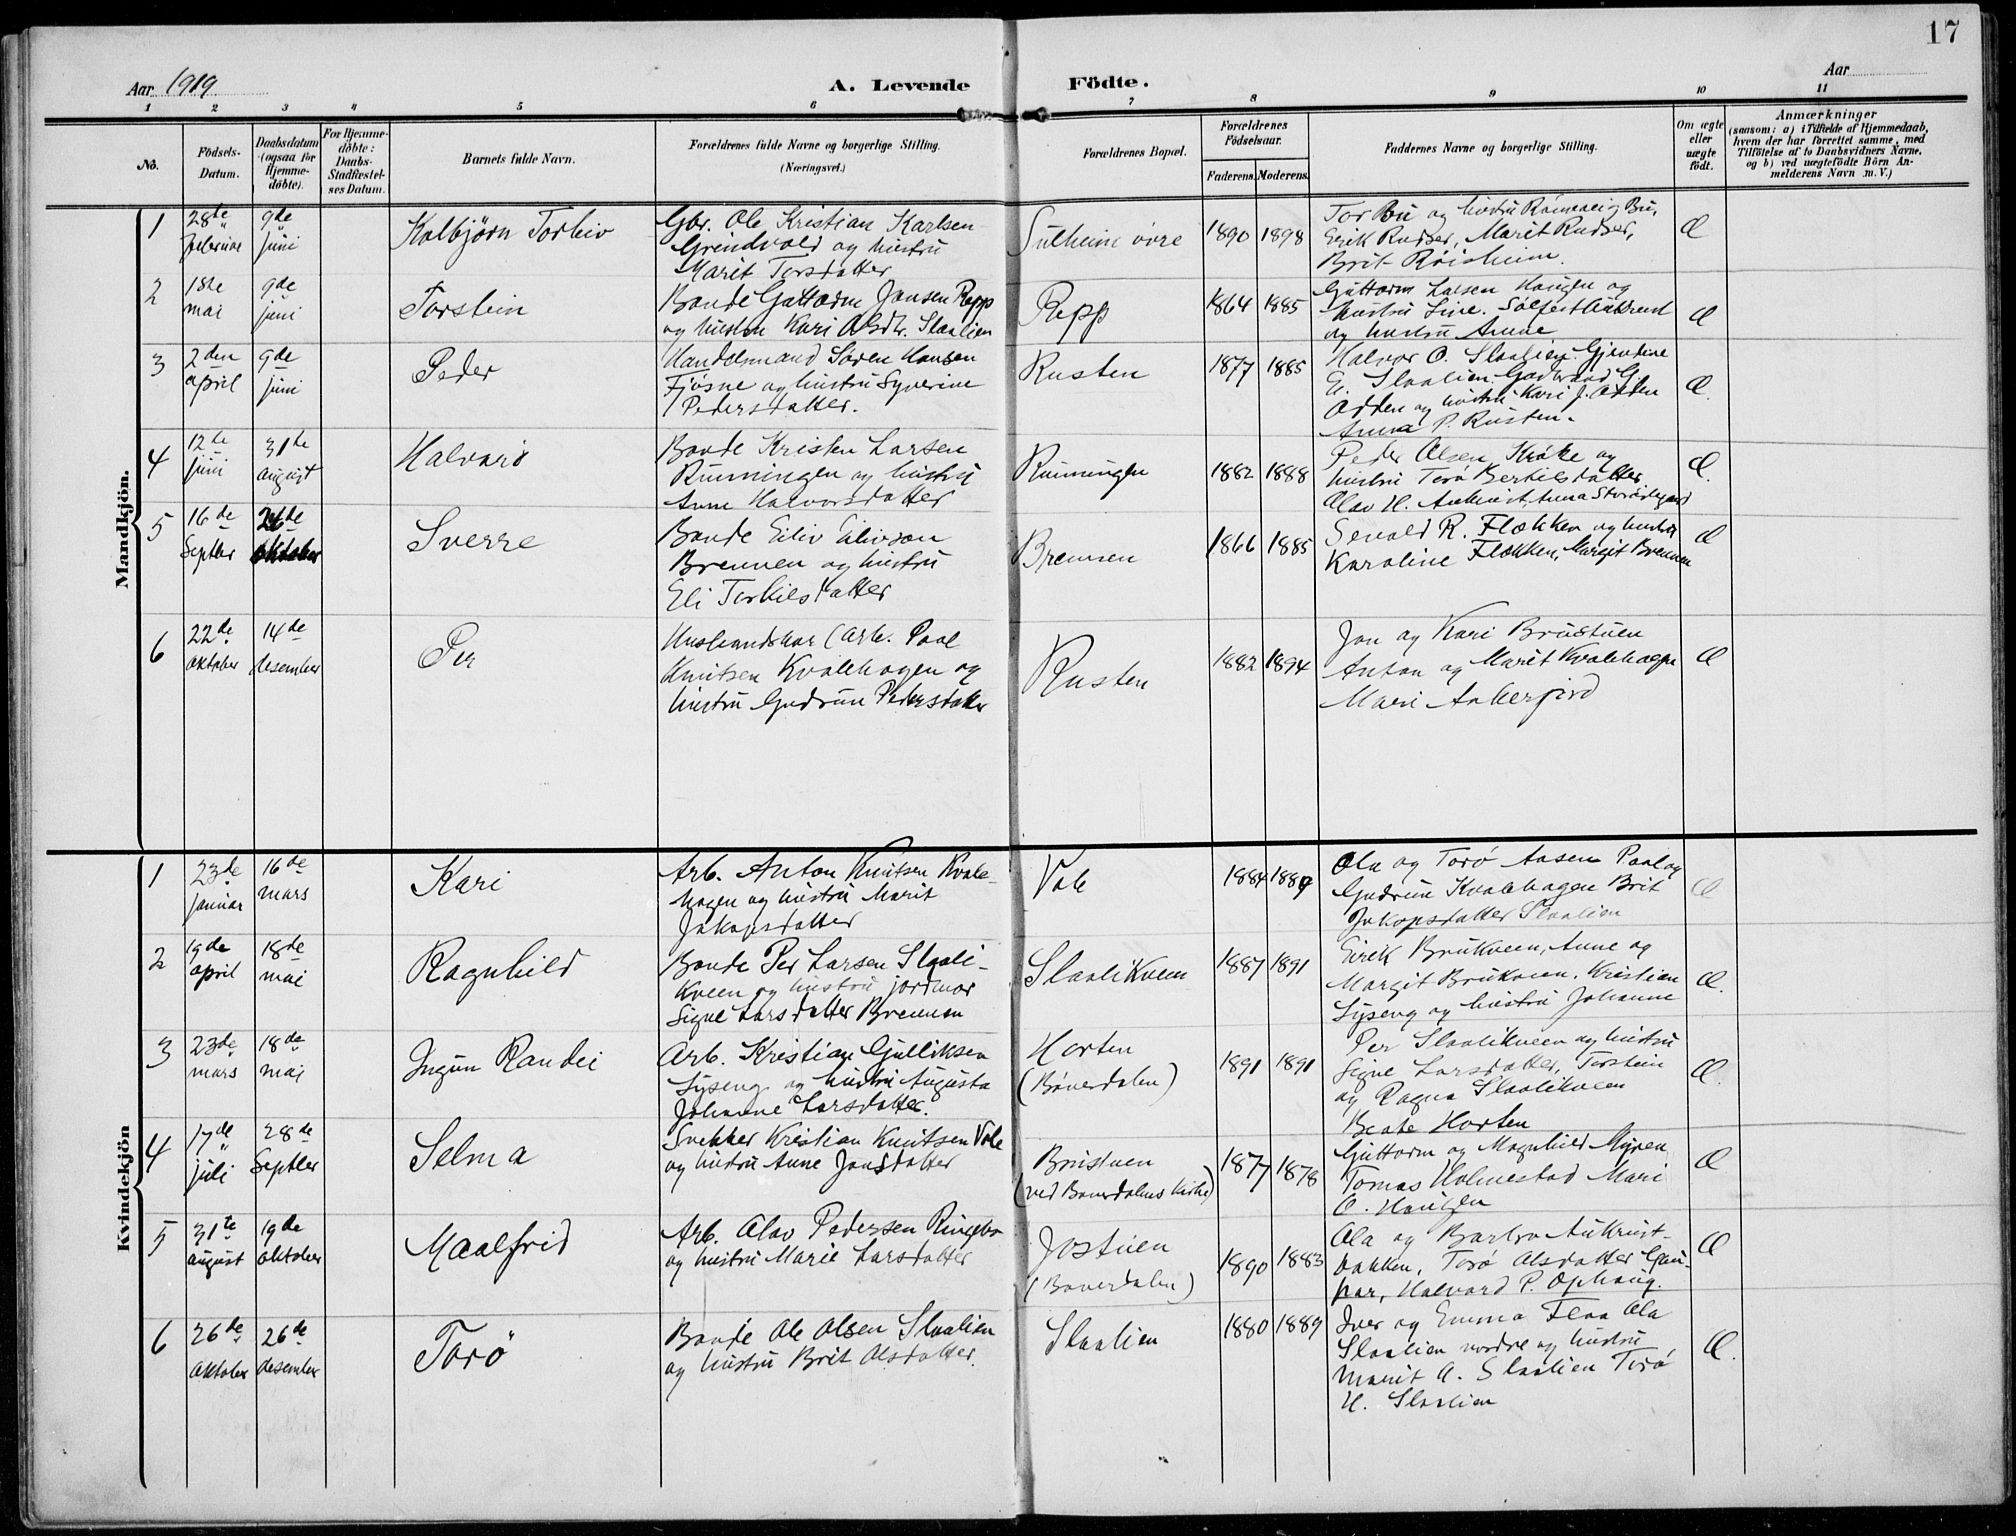 17
Aar 1919
A. Levende Födte.
Aar
1 2 3 4 5 6 7 8 9 10 11
No.
Födsels-Datum.
Daabsdatum (ogsaa for Hjemme-döbte).
For Hjemme-döbte: Daabs-Stadfæstel-ses Datum.
Barnets fulde Navn.
Forældrenes fulde Navne og borgerlige Stilling.
(Næringsvei.)
Forældrenes Bopæl.
Forældrenes Födselsaar.
Faderens. Moderens.
Faddernes Navne og borgerlige Stilling.
Om ægte eller uægte födt.
Anmærkninger
(saasom: a) i Tilfælde af Hjemmedaab,
hvem der har forrettet samme, med
Tilföielse af to Daabsvidners Navne.
og b) ved uægtefödte Börn An-
melderens Navn m. V.)
Mandkjön.
1 28de februar 9de juni Kolbjørn Torleiv
Gbr. Ole Kristian Karlsen
Grindvold og hustru
Marit Torsdatter
Sulheim øvre 1890 1898
Tor Bu og hustru Bu,
Eirik Rudser, Marit Rudser,
Brit Røisheim.
Æ
2 18de mai 9de juni Torstein
Bonde Guttorm Jonsen Repp
og hustru Kari Olsdtr. Slaalien
Repp 1864 1885
Guttorm Larsen Haugen og
hustru Line. Solfest Aukrust
og hustru Anne
Æ
3 2den april 9de juni Peder
Handelsmand Søren Hansen
Fjøsne og hustru Syverine
Pedersdatter.
Rusten 1877 1885
Halvor O. Slaalien. Gjendine
E. Slaalien. Gudbrand G.
Odden og hustru Kari J. Odden
Anna P. Rusten.
Æ.
4 12te juni 31te august Halvard
Bonde Kristen Larsen
Runningen og hustru
Anne Halvorsdatter
Runningen 1882 1888
Peder Olsen Kroke og
hustru Torø Bertilsdatter,
Olav H. Aukrust, Anna
Æ.
5 16de Septber 26de oktober Sverre
Bonde Eiliv Eilivson
Brennen og hustru
Eli Torkilsdatter
Brennen 1866 1885
Sevald R. Flekken og hustru
Karoline Flekken, Margit Brennen
Æ
6 22de oktober 14de desember Per
Husmandskar (Arb. Paal
Knutsen Kvalehagen og
hustru Gudrun Pedersdatter
Rusten 1882 1894
Jon og Kari Brustuen
Anton og Marit Kvalehagen
Mari
Æ
Kvindekjön
1 23de januar 16de mars Kari
Arb. Anton Knutsen Kvale-
hagen og hustru Marit
Jakopsdatter
Vole 1884 1889
Ola og Torø Aasen Paal og
Gudrun Kvalehagen Brit
Jakopsdatter Slaalien
Æ
2 19de april 18de mai Ragnhild
Bonde Per Larsen Slaali-
kveen og hustru jordmor
Signe Larsdatter Brennen
Slaalikveen 1887 1891
Eirik Brukveen, Anne og
Margit Brukveen. Kristian
Lyseng og hustru Johanne
Æ.
3 23de mars 18de mai Ingun Randei
Arb. Kristian Gulliksen
Lyseng og hustru Augusta
Johanne Larsdatter.
Horten
(Bøverdalen) 1891 1891
Per Slaalikveen og hustru
Signe Larsdatter, Torstein
og Ragna Slaalikveen
Beate Horten
Æ.
4 17de juli 28de Septber Selma
Snekker Kristian Knutsen Vole
og hustru Anne Jonsdatter
Brustuen
(ved Bøverdalens kirke) 1877 1878
Guttorm og Magnhild Myren,
Tomas Holmestad Mari
O. Haugen
Æ
5 31te august 19de oktober Maalfrid
Arb. Olav Pedersen Ringebu
og hustru Marie Larsdatter
Jostuen
(Bøverdalen) 1890 1883
Ola og Barbro Aukrust-
bakken, Torø Olsdatter Gau-
par, Halvard P. Ophaug.
Æ
6 26de oktober 26de desember Torø
Bonde Ole Olsen Slaalien
og hustru Brit Olsdatter.
Slaalien 1880 1889
Iver og Emma Flaa Ola
Slaalien nordre og hustru
Marit A. Slaalien Torø
H. Slaalien
Æ.